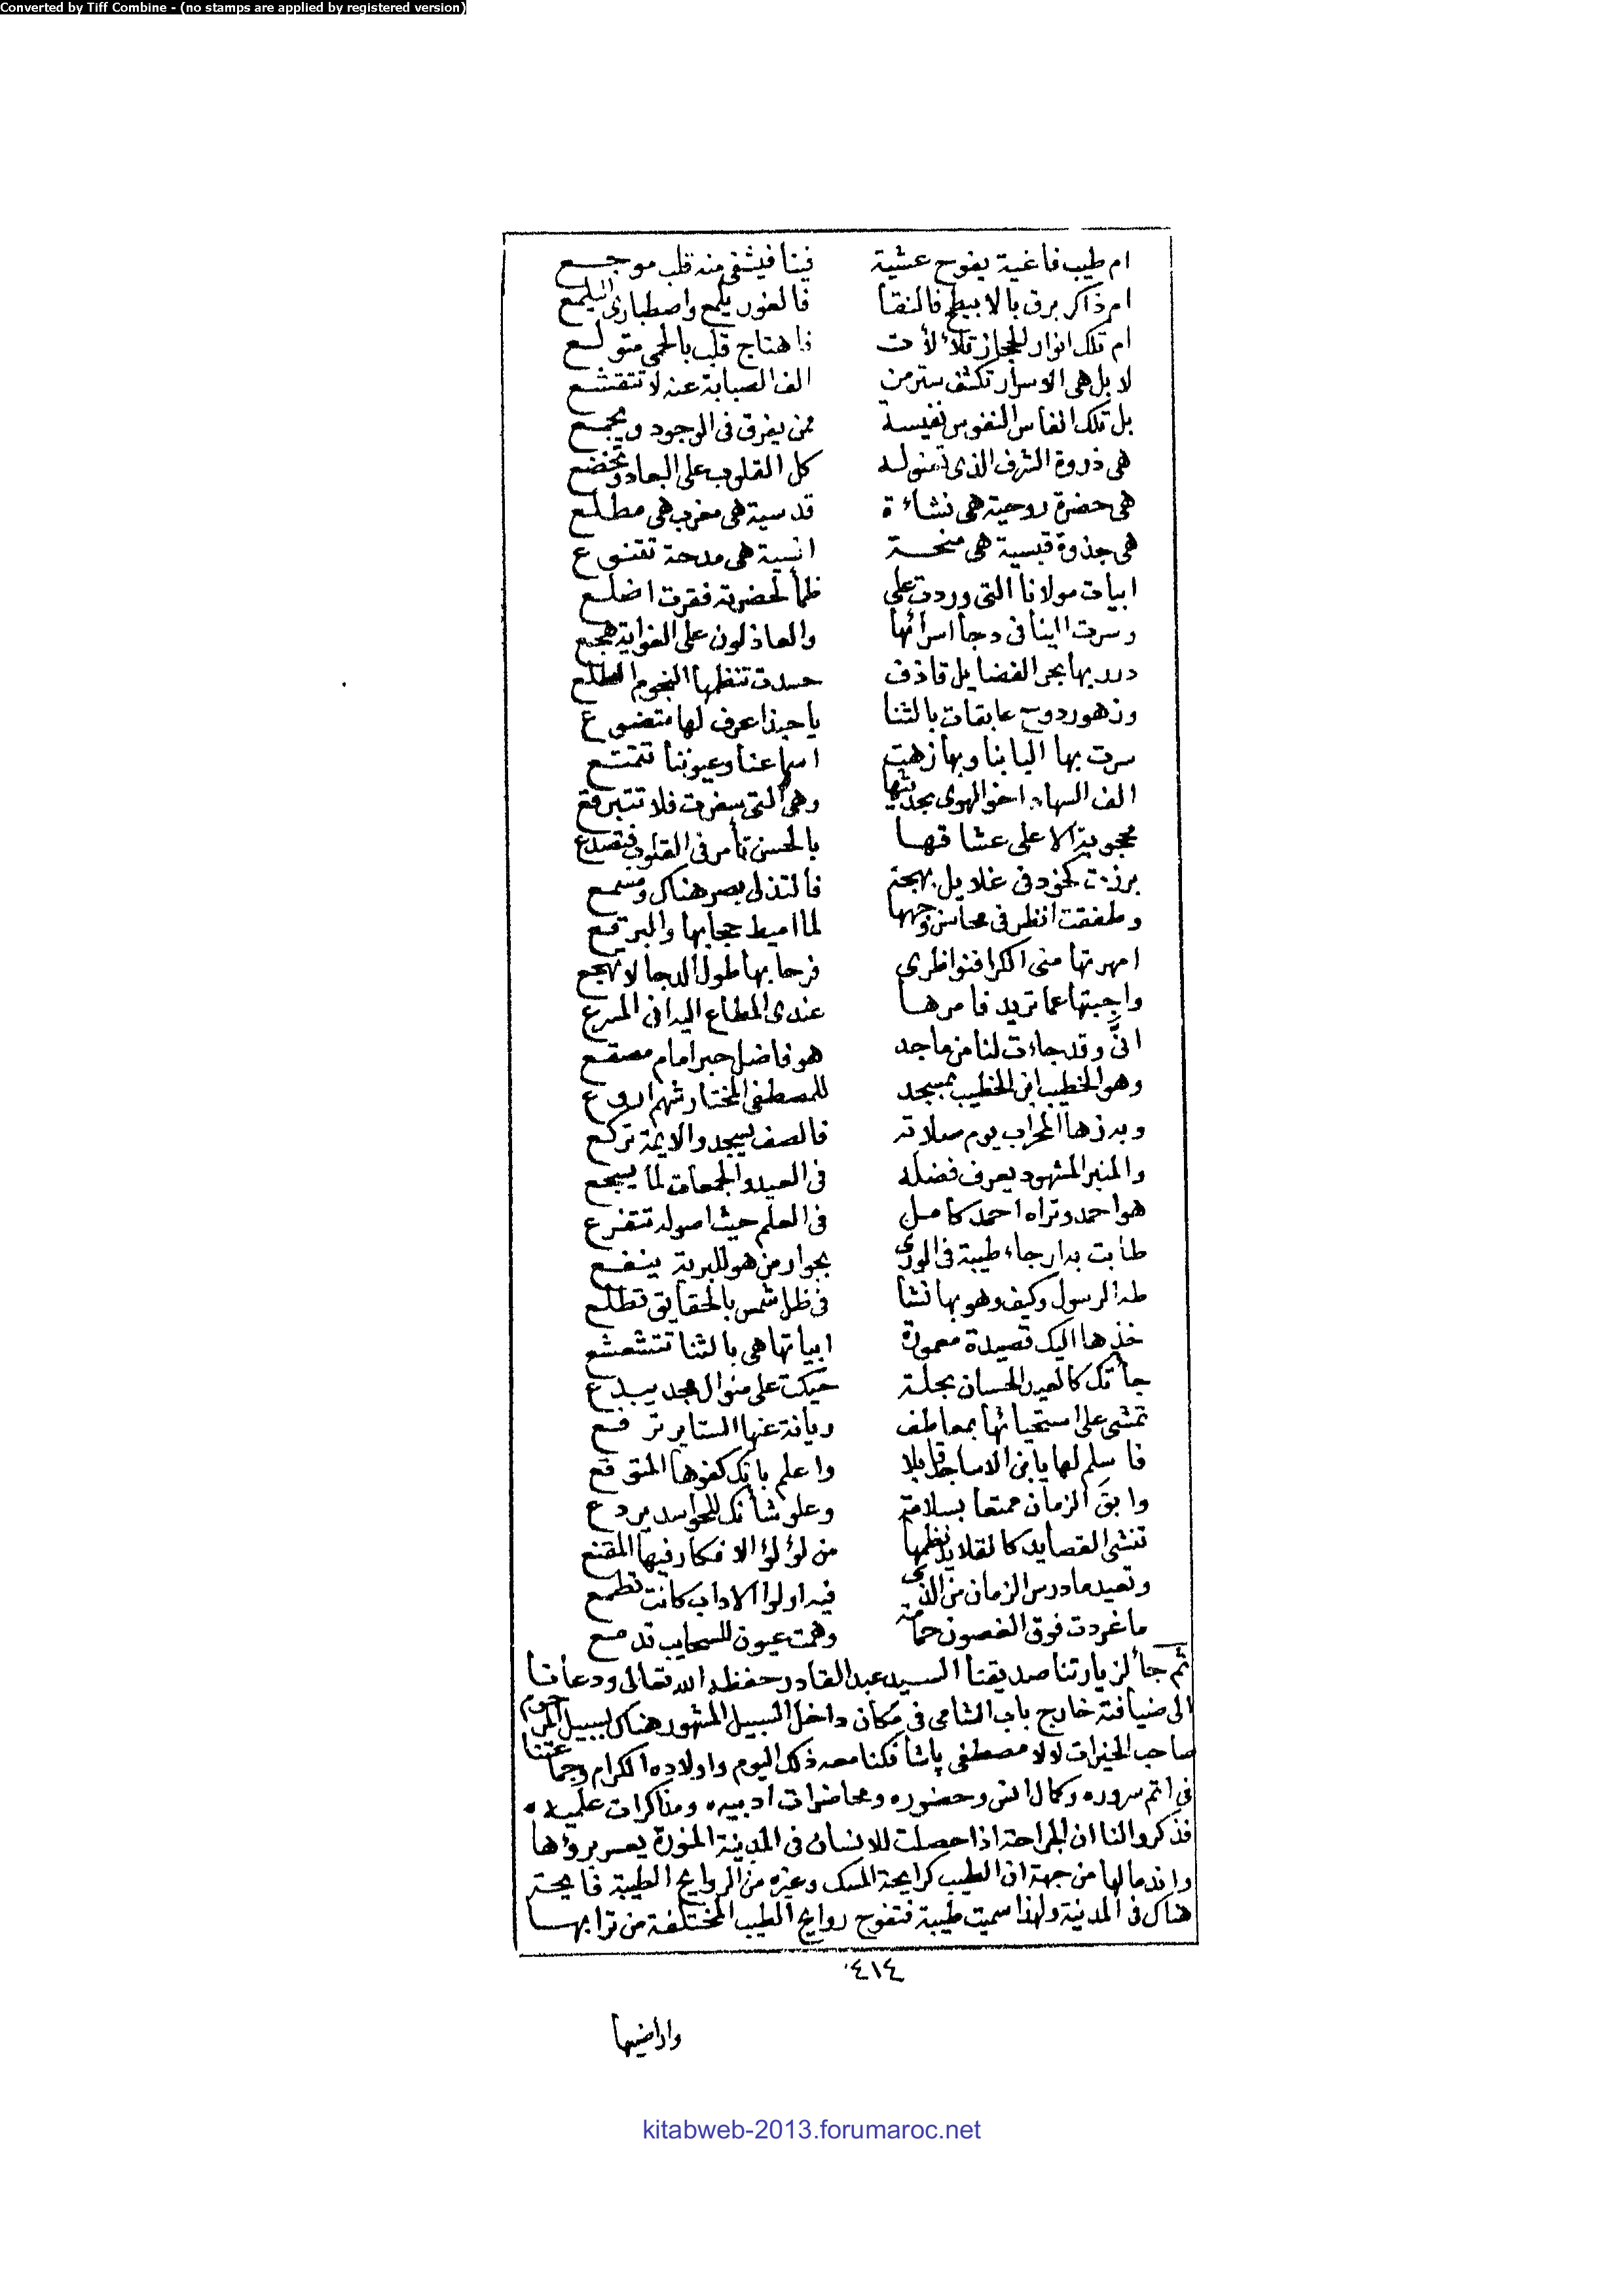 Converted by Tiff Combine - (no stamps are applied by registered version)
ام طيب فاغية يفوح عشية فينا فيشفى منه قلب موجع
ام ذاكر برق بالابيطح فالنقا فالغور يلمع واصطبارى اليلمع
ام تلك انوار الحجاز تلألأت فاهتاج قلب بالحمى متولع
لا بل هى الاسرار تكشف ستر من الف الصبابة عنه لا تتقشع
بل تلك انفاس النفوس نفيسة ممن يفرق فى الوجود ويجمع
هى ذروة الشرف الذى تعنو له كل القلوب على البعاد وتخضع
هى حضرة روحية هى نشاءة قدسية هى مغرب هى مطلع
هى جذوة قبسية هى منحة انسية هى مدحة تتنوع
ابيات مولانا التى وردت على ظمأ لحضرته فقرت اضلع
وسرت الينا فى دجا اسرائها والعاذلون على الغواية هجع
درر بها بحر الفضايل قاذف حسدت تنظمها النجوم الطلع
وزهور دوح عابقات بالثنا ياحبذا عرف لها متضوع
سرت بها البابنا وبها زهت اسماعنا وعيوننا تتمتع
الف السهاد اخو الهوى بحديثها وهى التى سفرت فلا تتبرقع
محجوبة الا على عشاقها بالحسن تأمر فى القلوب فتصدع
برزت كخود فى غلايل بهجة فالتذلى بصر هناك ومسمع
وطفقت انظر فى محاسن وجهها لما اميط حجابها والبرقع
امهرتها منى الكرا فنواظرى فرحا بها طول الدجا لا تهجع
واجبتها عما تريد فامرها عندى المطاع اليه انى المسرع
انى وقد جاءت لنا من ماجد هو فاضل حبر امام مصقع
وهو الخطيب ابن الخطيب بمسجد للمصطفى المختار شهم اروع
وبه زها المحراب يوم صلاته فالصف يسجد والايمة تركع
والمنبر المشهود يعرف فضله فى العيد والجمعات لما يسجع
هو احمد وتراه احمد كامل فى العلم حيث اصوله تتفرع
طابت به ارجاء طيبة فى الورى بجوار من هو للبرية ينفع
طه الرسول وكيف وهو بها نشا فى ظل شمس بالحقايق تطلع
خذها اليك قصيدة معمورة ابياتها هى بالثنا تتشعشع
جأتك كالعيد الحسان بحلة حيكت على منوال مجد يبدع
تمشى على استحيائها بمعاطف ريانة عنها الستاير ترفع
فاسلم لها يابن الاماجد قابلا واعلم بانك كفوها المتوقع
وابق الزمان ممتعا بسلامة وعلو شأنك للحواسد يردع
تنشى القصايد كالقلايد نظمها من لؤلؤ الافكار فيها المقنع
وتعيد ما درس الزمان من الذى فيه اولوا الاداب كانت تطمع
ما غردت فوق الغصون حمامة وهمت عيون للسحايب تدمع
ثم جأ لزيارتنا صديقنا السيد عبد القادر حفظه الله تعالى ودعأنا
الى ضيافته خارج باب الشامى فى مكان داخل السبيل المشهور هناك بسبيل المرحوم
صاحب الخيرات لالا مصطفى پاشا فكنا معه ذلك اليوم واولاده الكرام وجماعتنا
فى اتم سروره وكمال انس وحضوره ومحاضرات ادبيه ومذاكرات علميه
فذكروا لنا ان الجراحة اذا حصلت للانسان فى المدينة المنورة يعسر برؤها
واندمالها من جهة ان الطيب كرايحة المسك وغيره من الروايح الطيبة فايحة
هناك فى المدينة ولهذا سميت طيبة فتفوح روايح الطيب المختلفة من ترابها
٤١٤
واراضيها
kitabweb-2013.forumaroc.net